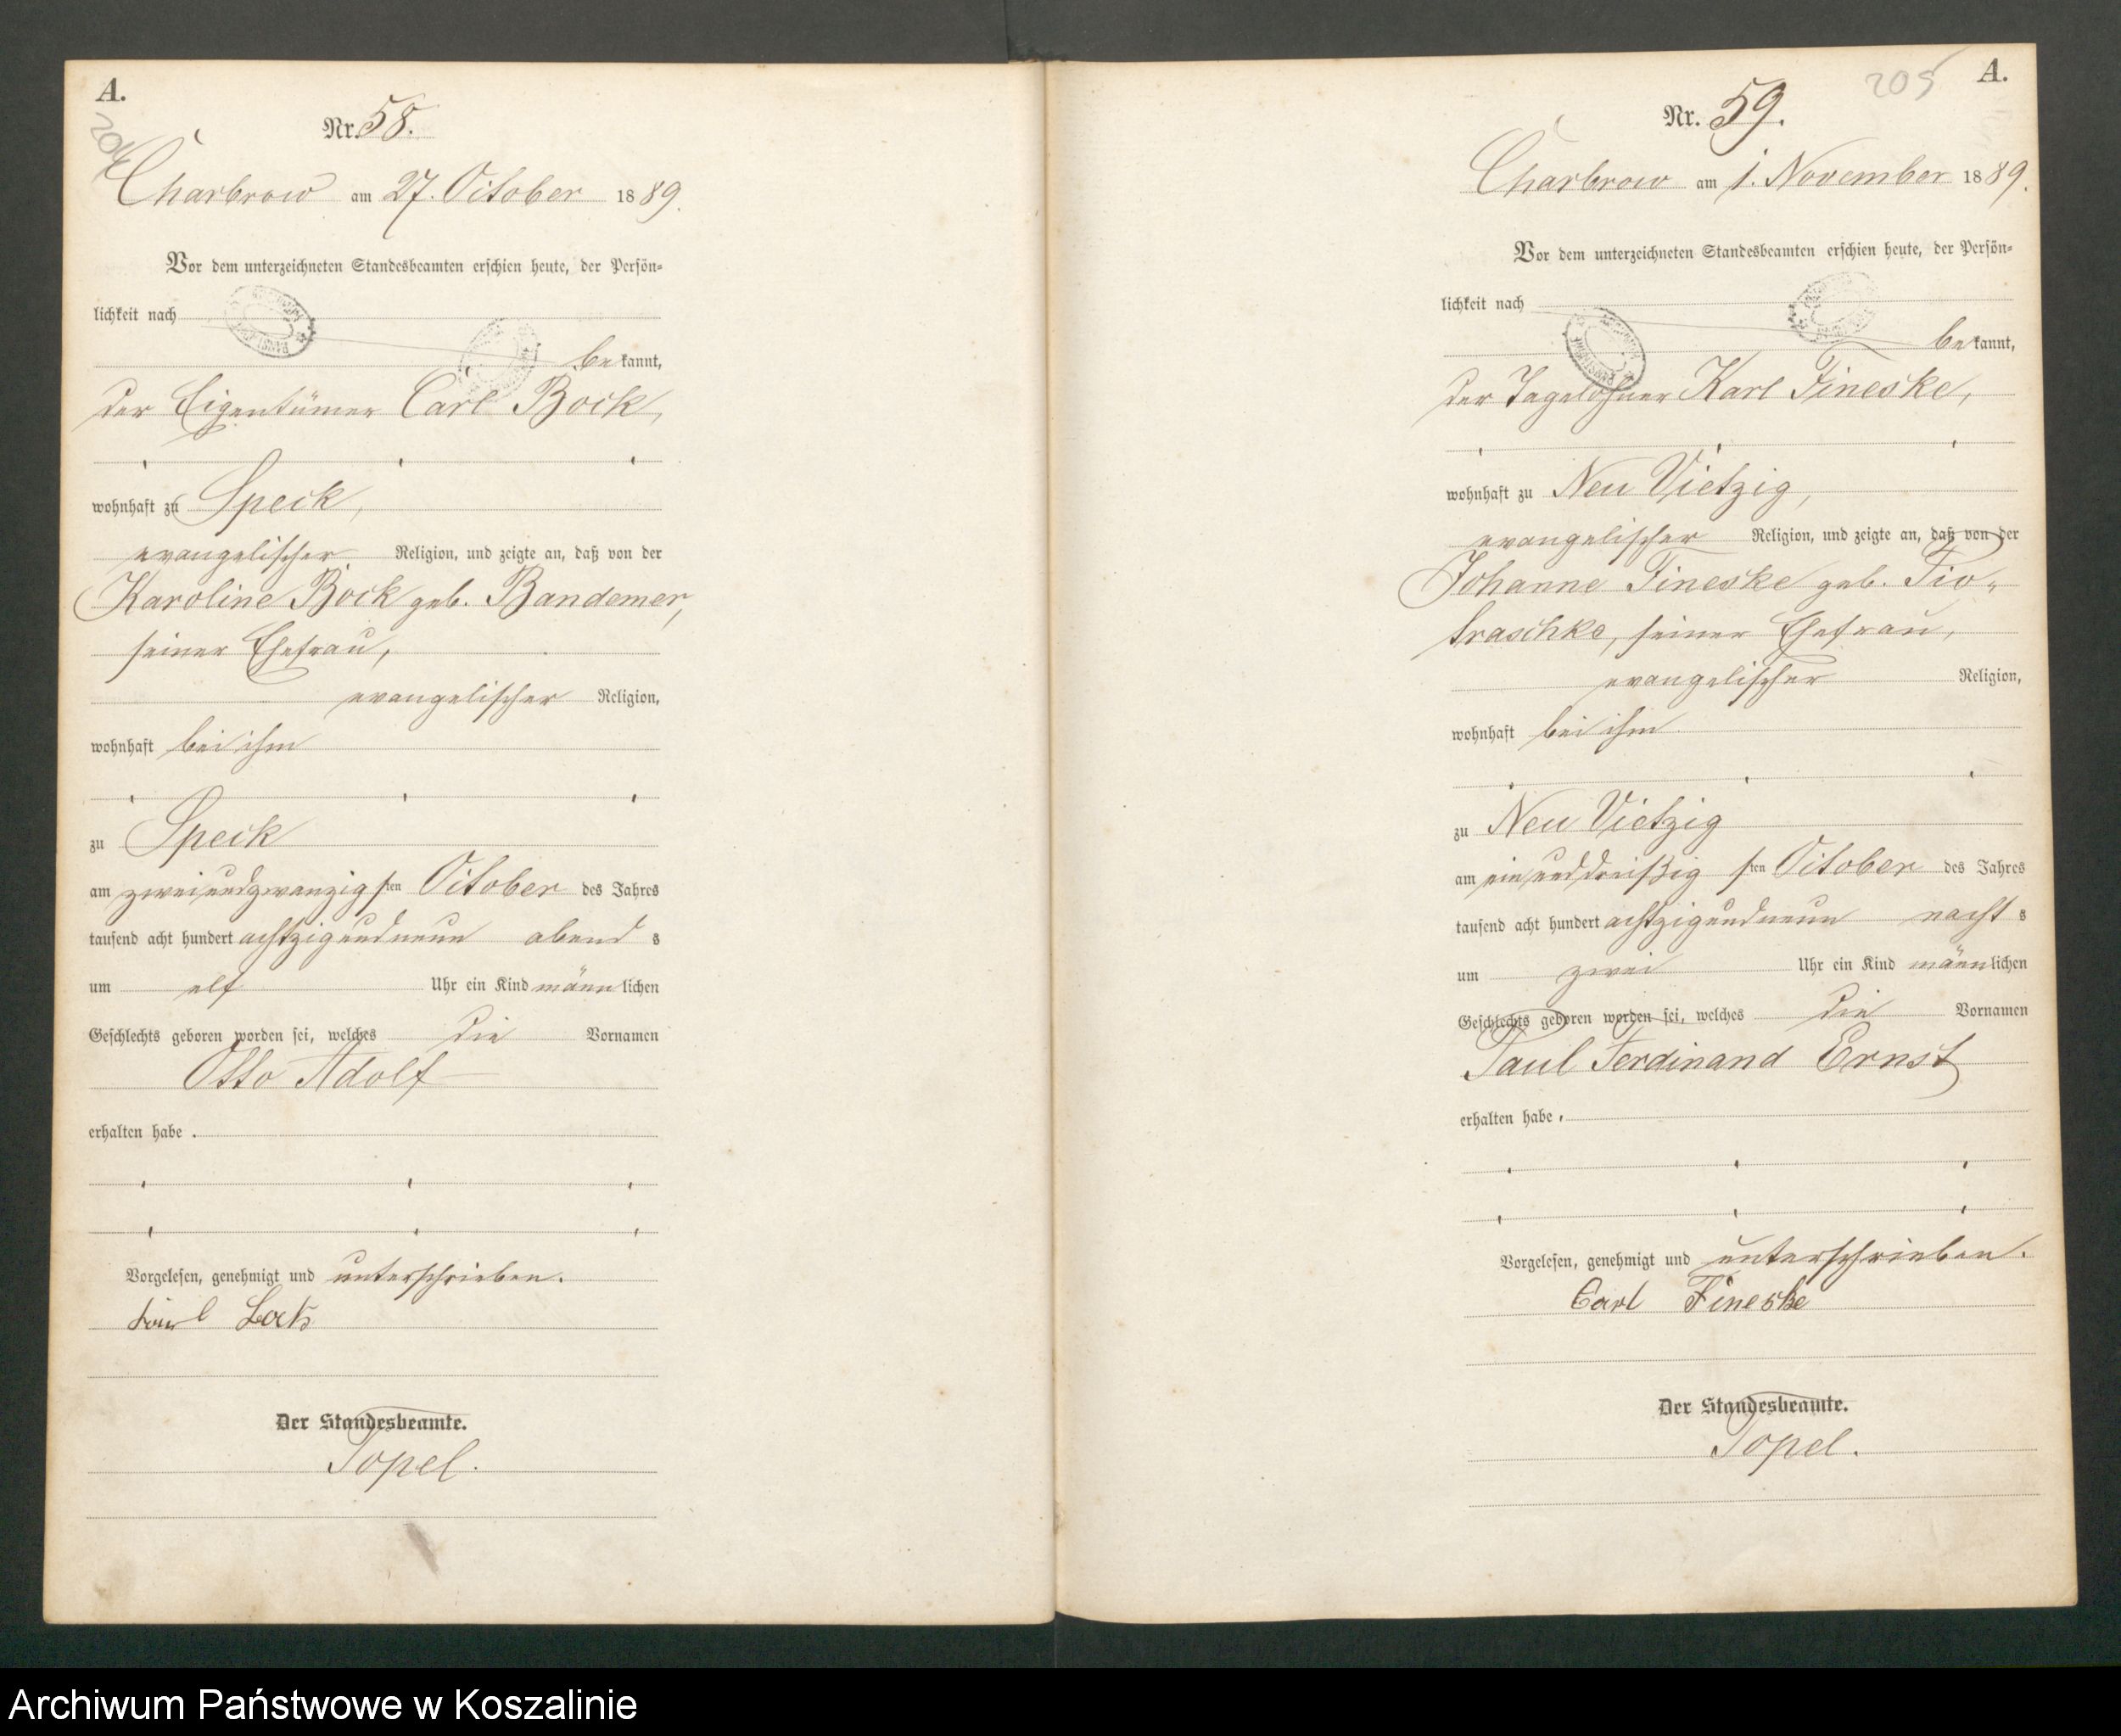 A.
204
Nr. 58.
Charbrow am 27. October 1889.
Vor dem unterzeichneten Standesbeamten erschien heute, der Persön-
lichkeit nach
bekannt,
der Eigentümer Carl Bock,
wohnhaft zu Speck,
evangelischer Religion, und zeigte an, daß von der
Karoline Bock geb. Bandemer,
seiner Ehefrau,
evangelischer Religion,
wohnhaft bei ihm
zu Speck
am zweiundzwanzigsten October des Jahres
tausend acht hundert achtzigundneun abends
um elf Uhr ein Kind männlichen
Geschlechts geboren worden sei, welches die Vornamen
Otto Adolf
erhalten habe.
Vorgelesen, genehmigt und unterschrieben.
Carl Bock
Der Standesbeamte.
Topel.
205
A.
Nr. 59.
Charbrow am 1. November 1889.
Vor dem unterzeichneten Standesbeamten erschien heute, der Persön-
lichkeit nach
bekannt,
der Tagelöhner Karl Fineske,
wohnhaft zu Neu Vietzig,
evangelischer Religion, und zeigte an, daß von der
Johanne Fineske geb. Pio-
traschke, seiner Ehefrau,
evangelischer Religion,
wohnhaft bei ihm
zu Neu Vietzig
am einunddreißigsten October des Jahres
tausend acht hundert achtzigundneun nachts
um zwei Uhr ein Kind männlichen
Geschlechts geboren worden sei, welches die Vornamen
Paul Ferdinand Ernst
erhalten habe.
Vorgelesen, genehmigt und unterschrieben.
Carl Fineske
Der Standesbeamte.
Topel.
Archiwum Państwowe w Koszalinie